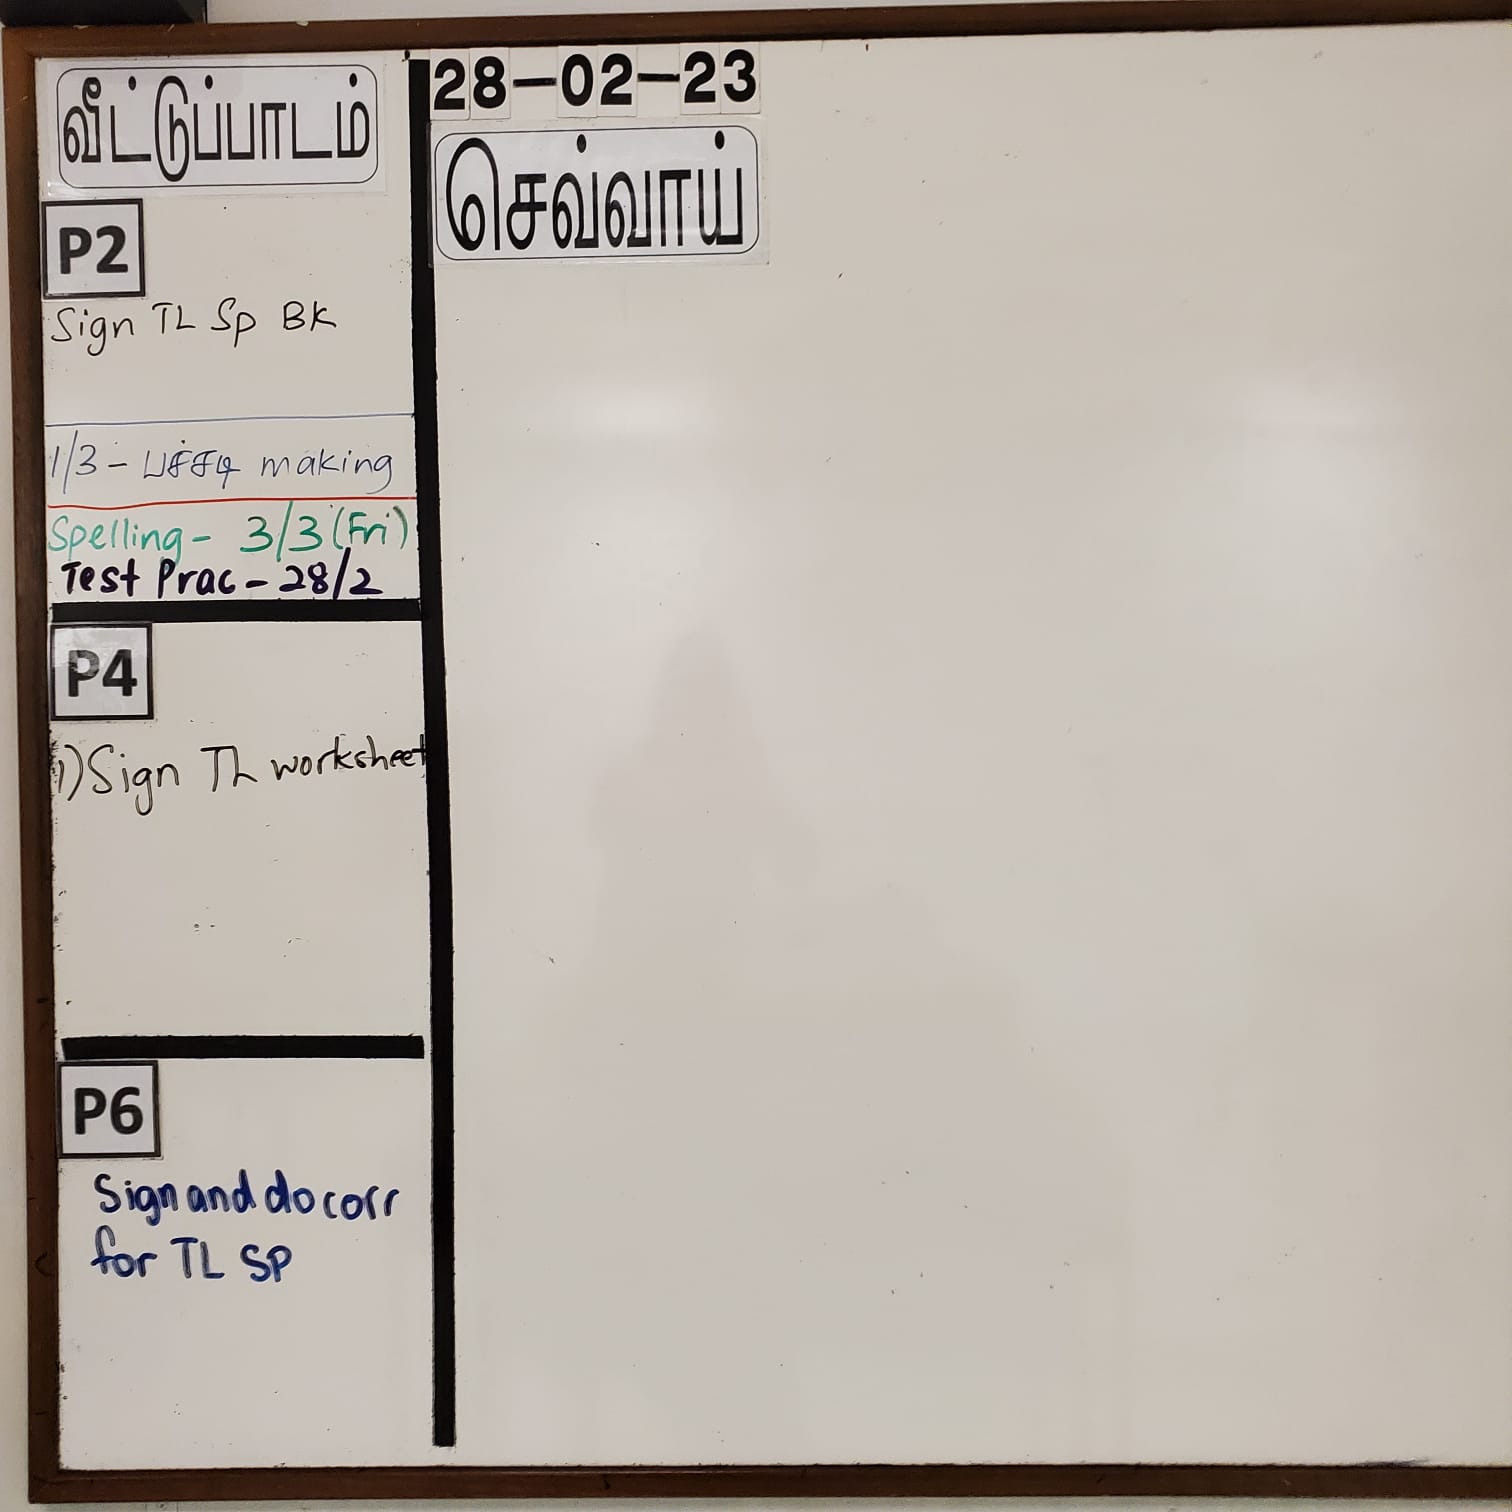 வீட்டுப்பாடம்
28-02-23
செவ்வாய்
P2
Sign TL Sp BK
1/3 - பச்சடி making
Spelling - 3/3 (Fri)
Test Prac - 28/2
P4
1) Sign TL worksheet
P6
Sign and do corr
for TL SP